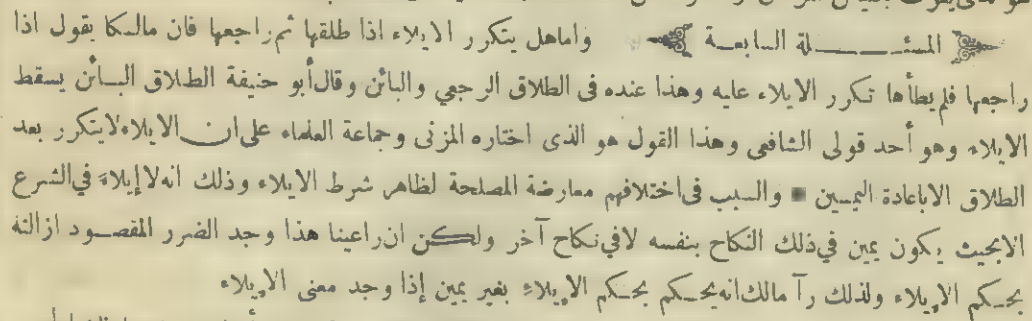 المسئلة السابعة واما هل يتكرر الايلاء اذا طلقها ثم راجعها فان مالكا يقول اذا
راجعها فلم يطأها تكرر الايلاء عليه وهذا عنده في الطلاق الرجعي والبائن وقال أبو حنيفة الطلاق البائن يسقط
الايلاء وهو أحد قولى الشافعى وهذا القول هو الذى اختاره المزنى وجماعة العلماء على ان الايلاء لايتكرر بعد
الطلاق الاباعادة اليمين ■ والسبب فى اختلافهم معارضة المصلحة لظاهر شرط الايلاء وذلك انه لا إيلاءَ في الشرع
الابحيث يكون يمين في ذلك النكاح بنفسه لافي نكاح آخر ولكن ان راعينا هذا وجد الضرر المقصود ازالته
بحكم الإيلاء ولذلك رآ مالك انه يحكم بحكم الإيلاءِ بغير يمين إذا وجد معنى الإيلاء